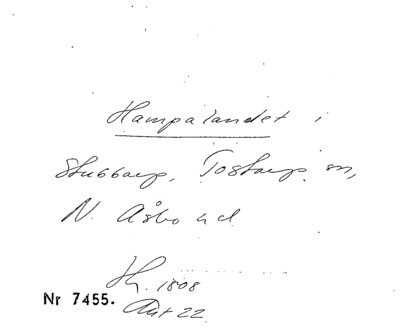 Hampalandet i
Stubbarp, Tostarp sn,
N. Åsbo hd
H. 1808
Akt 22
Nr 7455.